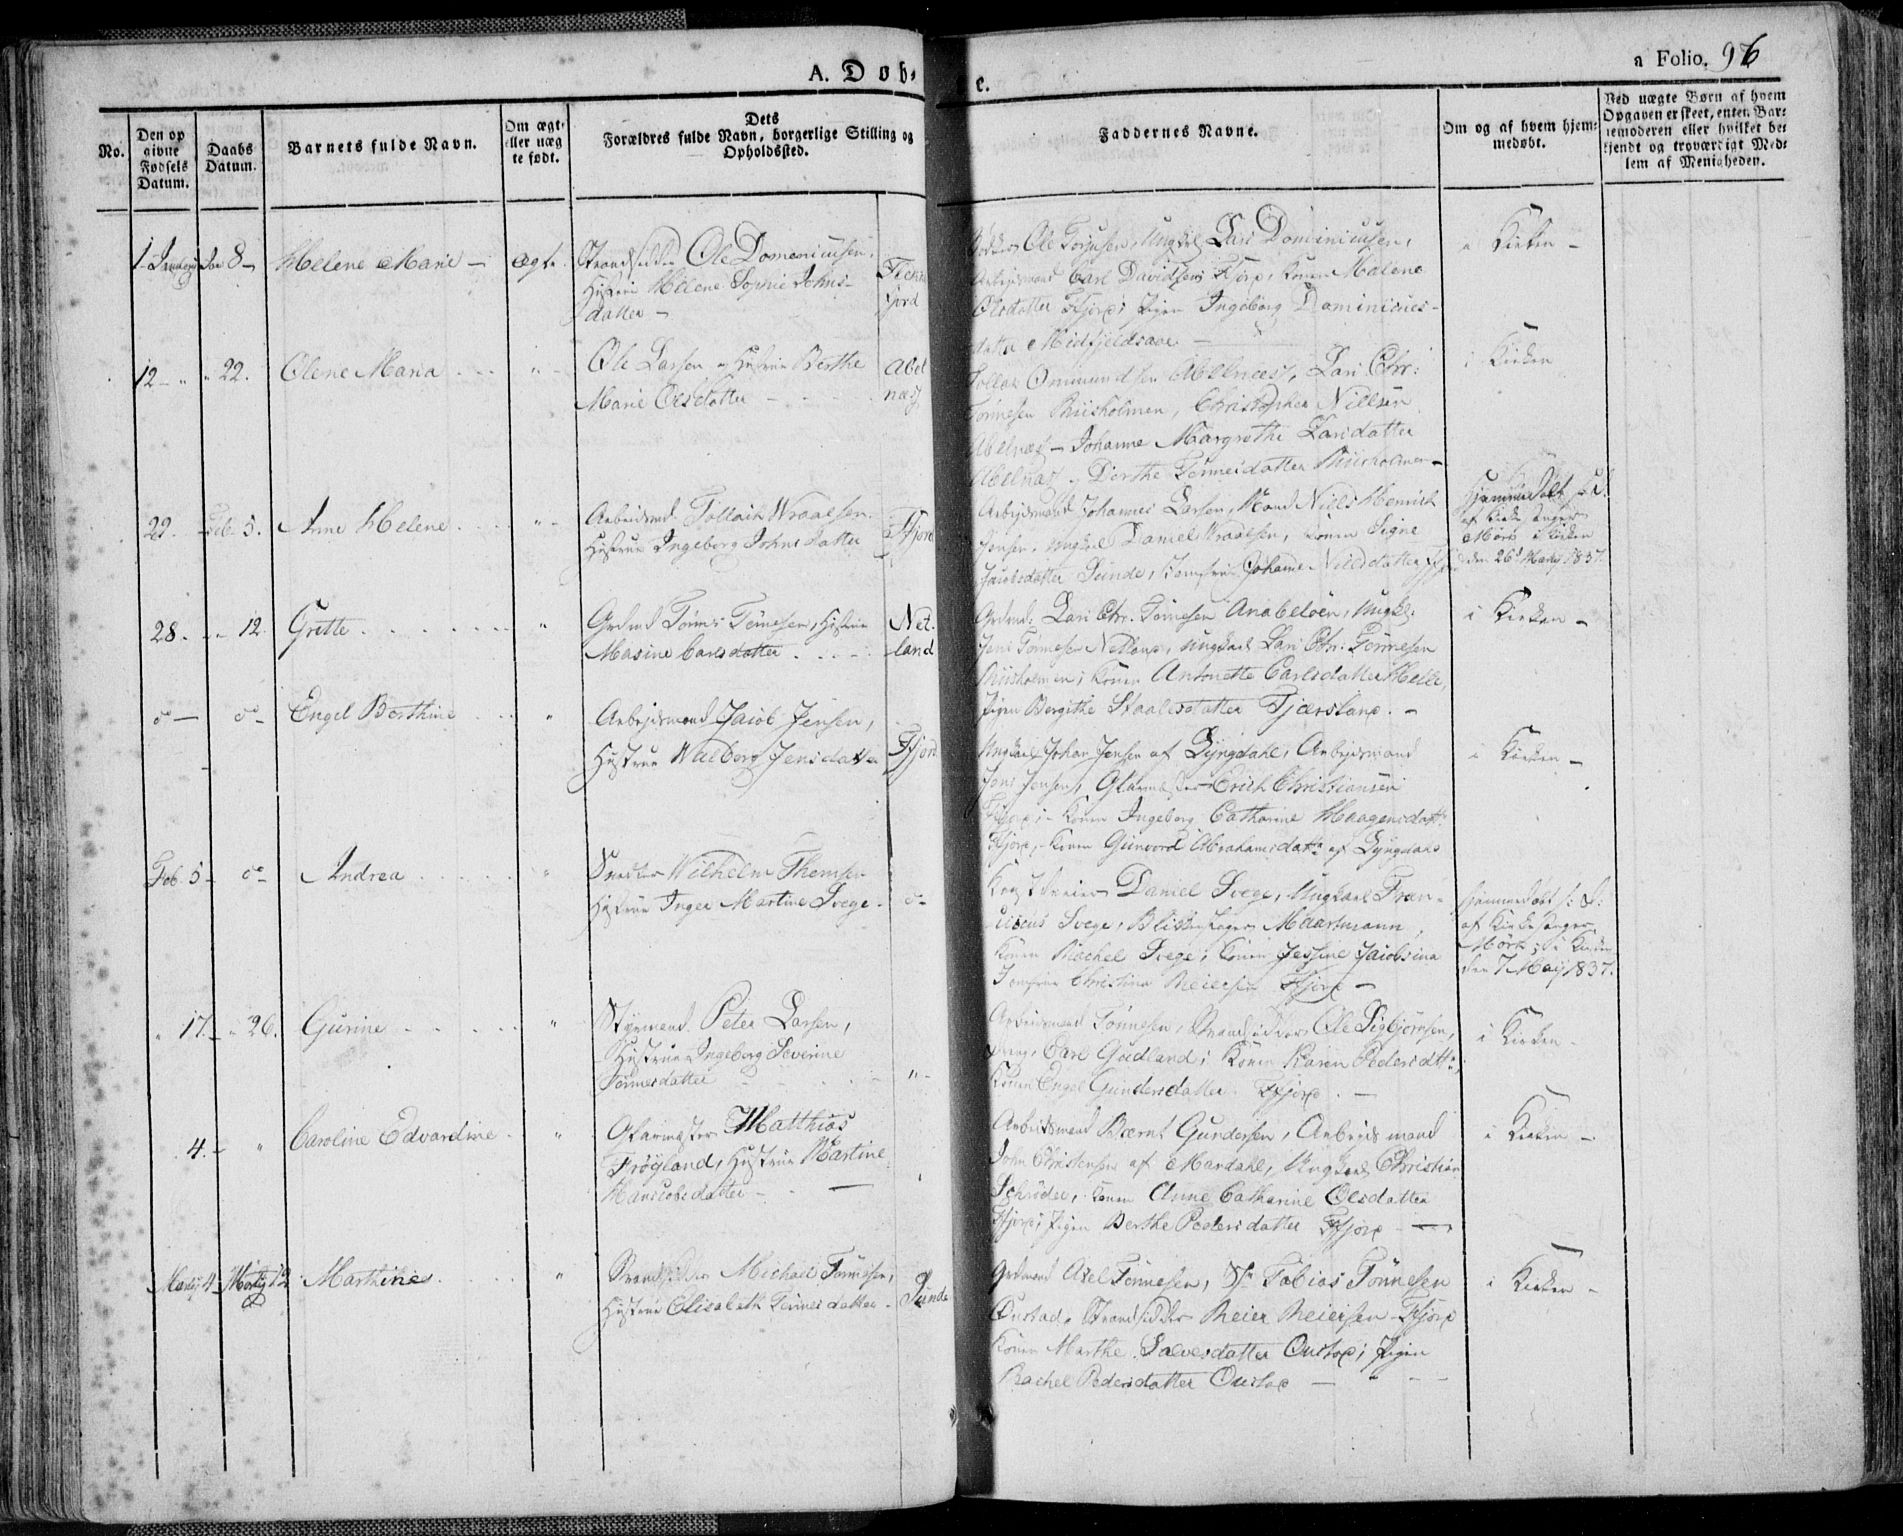 A. Døb-
e.
a Folio. 96
No.
Den op
givne
Fødsels
Datum.
Daabs
Datum.
Barnets fulde Navn.
Om ægt-
eller uæg
te født.
Dets
Forældres fulde Navn, borgerlige Stilling og
Opholdssted.
Faddernes Navne.
Om og af hvem hjem-
medøbt.
Ved uægte Børn af hvem
Opgaven er skeet, enten Bar-
nemoderen eller hvilket be-
kjendt og troværdigt Med-
lem af Menigheden.
8 - Helene Marie - ægte
Strandsidder Ole Domenicusen,
Hustrue Helene Sophie Johns-
datter -
Ole Tørjusen, Ungkarl Lars Dominicusen,
Arbejdsmand Carl Davidsen Ffjord, Konen Malene
Olsdatter Ffjord; Pigen Ingeborg Dominicues-
datter Midfjeldsaae -
i Kirken -
12 - " " 22. Olene Maria
Ole Larsen og Hustrue Berthe
Marie Olsdatter
Abel
næs
Tollak Ommundsen Abelnæs, Lars Chr:
Tønnesen Riisholmen, Christopher Nielsen
Abelnæs - Johanne Margrethe Larsdatter
Abelnæs - Dorthe Tønnesdatter Riisholmen -
i Kirken
29. - Feb. 5. Anne Helene
Arbeidsmd Tollak Wraalsen
Hustrue Ingeborg Johnsdatter
Ffjord
Arbejdsmand Johannes Larsen, Mand Niels Henrich
Jensen, Ungkarl Daniel Wraalsen, Konen Signe
Jacobsdatter Sunde, Jomfrue Johanne Nielsdatter Ffjord
hjemmedøbt
af Kirkesanger
Mørk i Kirken
den 26d Marty 1837.
28. " 12. Grette
Grdmd Tønnes Tønnesen, Hustrue
Masine Carlsdatter
Net-
land
Grdmd: Lars Chr. Tønnesen Anabeløen, Ungkl:
Jens Tønnesen Netland, Ungkarl Lars Chr: Tønnesen
Riisholmen; Konen Antonette Carlsdatter Helle,
Pigen Bergithe Staalesdatter Fjærsland. -
i Kirken -
do - do - Engel Berthine "
Arbejdsmand Jacob Jensen,
Hustrue Walborg Jensdatter
Ffjord
Ungkarl Johan Jensen af Lyngdahl, Arbejdsmand
Jens Jensen, Glarmester Erich Christiansen
Ffjord; - Konen Ingeborg Catharine Haagensdattr
Ffjord, - Konen Gunvord Abrahamsdattr af Lyngdahl
i Kirken -
Feb. 5 - do - Andrea "
Snedker Wilhelm Themsen
Hustrue Inger Martine Svege - do -
Daniel Svege, Ungkarl Fran-
ciscus Svege, Blikkenslager Maartmann,
Konen Rachel Svege; Konen Jessine Jacobsina
Jomfrue Christina Reiersen Ffjord -
hjemmedøbt
af Kirkesanger
Mørk; i Kirken
den 7 May 1837.
" 17. - " 26. Gurine "
Styrmand Peter Larsen,
Hustrue Ingeborg Severine
Tønnesdatter " -
Arbejdsmand Tønnesen, Strandsidder Ole Sigbjørnsen,
Carl Gudland; Konen Karen Pedersdttr,
Konen Engel Gundersdatter Ffjord. -
i Kirken -
4. - " Caroline Edvardine "
Glarmester Matthias
Frøyland, Hustrue Martine
Hanscobsdatter -
Arbeidsmand Bernt Gundersen, Arbejdsmand
John Christensen af Mandahl, Ungkarl Christian
Schrøder, Konen Anne Catharine Olsdatter
Ffjord; Pigen Berthe Pedersdatter Ffjord -
i Kirken -
Marty 4 - Marty 12 Marthine "
Strandsidder Michael Tønnesen,
Hustrue Elisabeth Tønnesdatter -
Sunde
Grdmand Axel Tønnesen, Tobias Tønnesen
Oustad, Strandsidder Reier Reiersen Ffjord
Konen Marthe Salvesdatter Oustad; Pigen
Rachel Pedersdatter Oustad -
i Kirken -